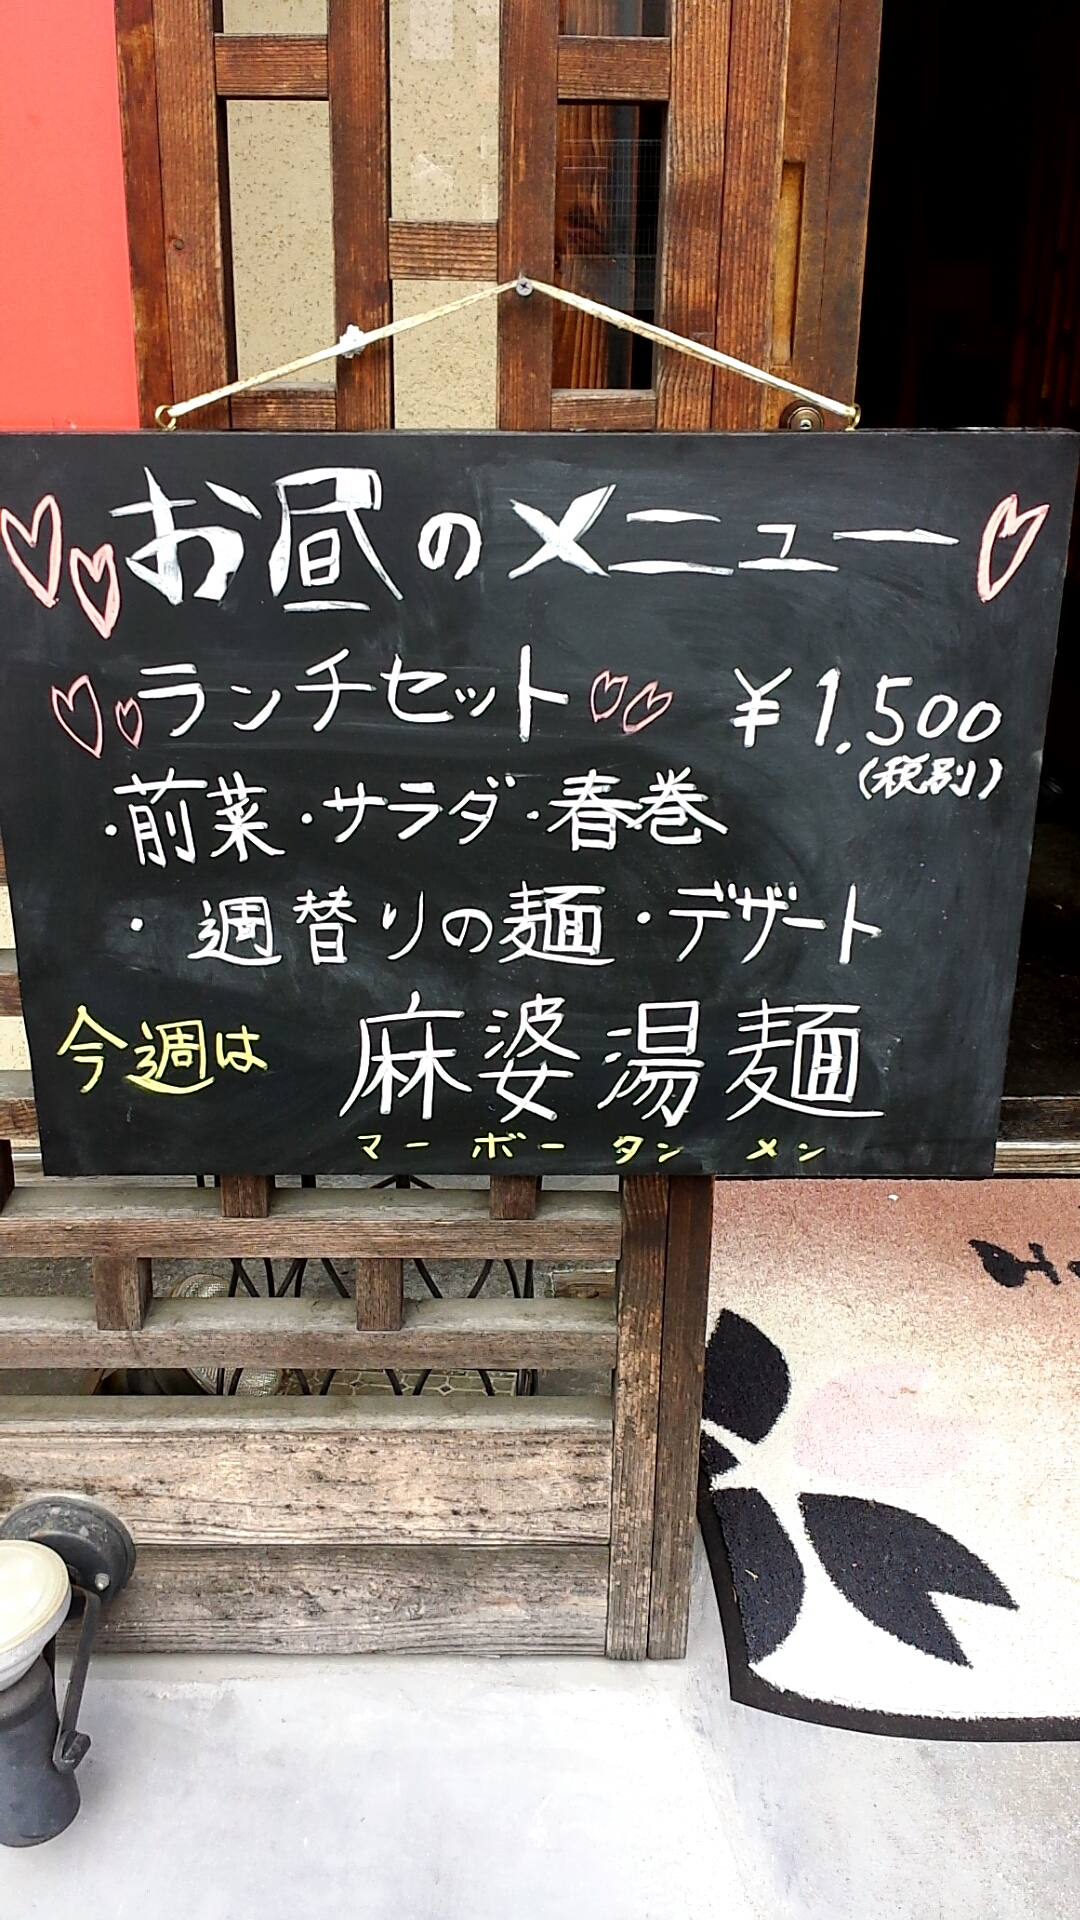 お昼のメニュー
ランチセット ¥1,500
(税別)
・前菜・サラダ・春巻
・週替りの麺・デザート
今週は 麻婆湯麺
マーボータンメン